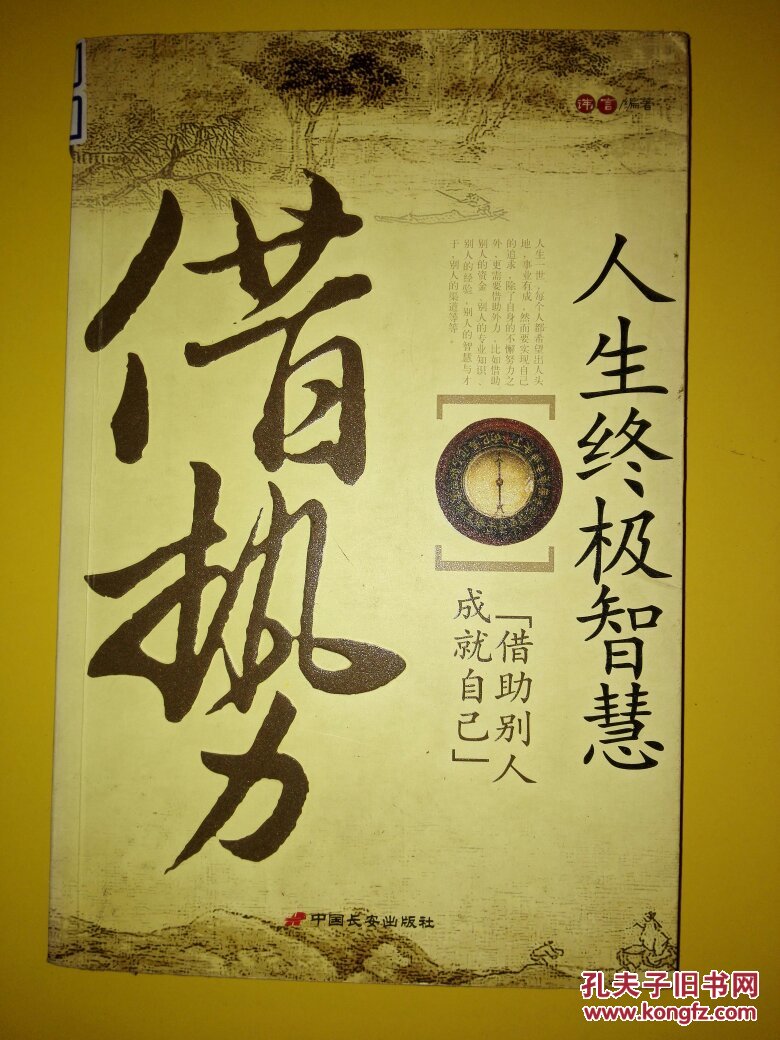 言/编著
人生终极智慧
人生一世，每个人都希望出人头
地，事业有成，然而要实现自己
的追求，除了自身的不懈努力之
外，更需要借助外力，比如借助
别人的资金、别人的专业知识、
别人的经验，别人的智慧与才
干，别人的渠道等等。
「借助别人
成就自己」
借势
中国长安出版社
孔夫子旧书网
www.kongfz.com